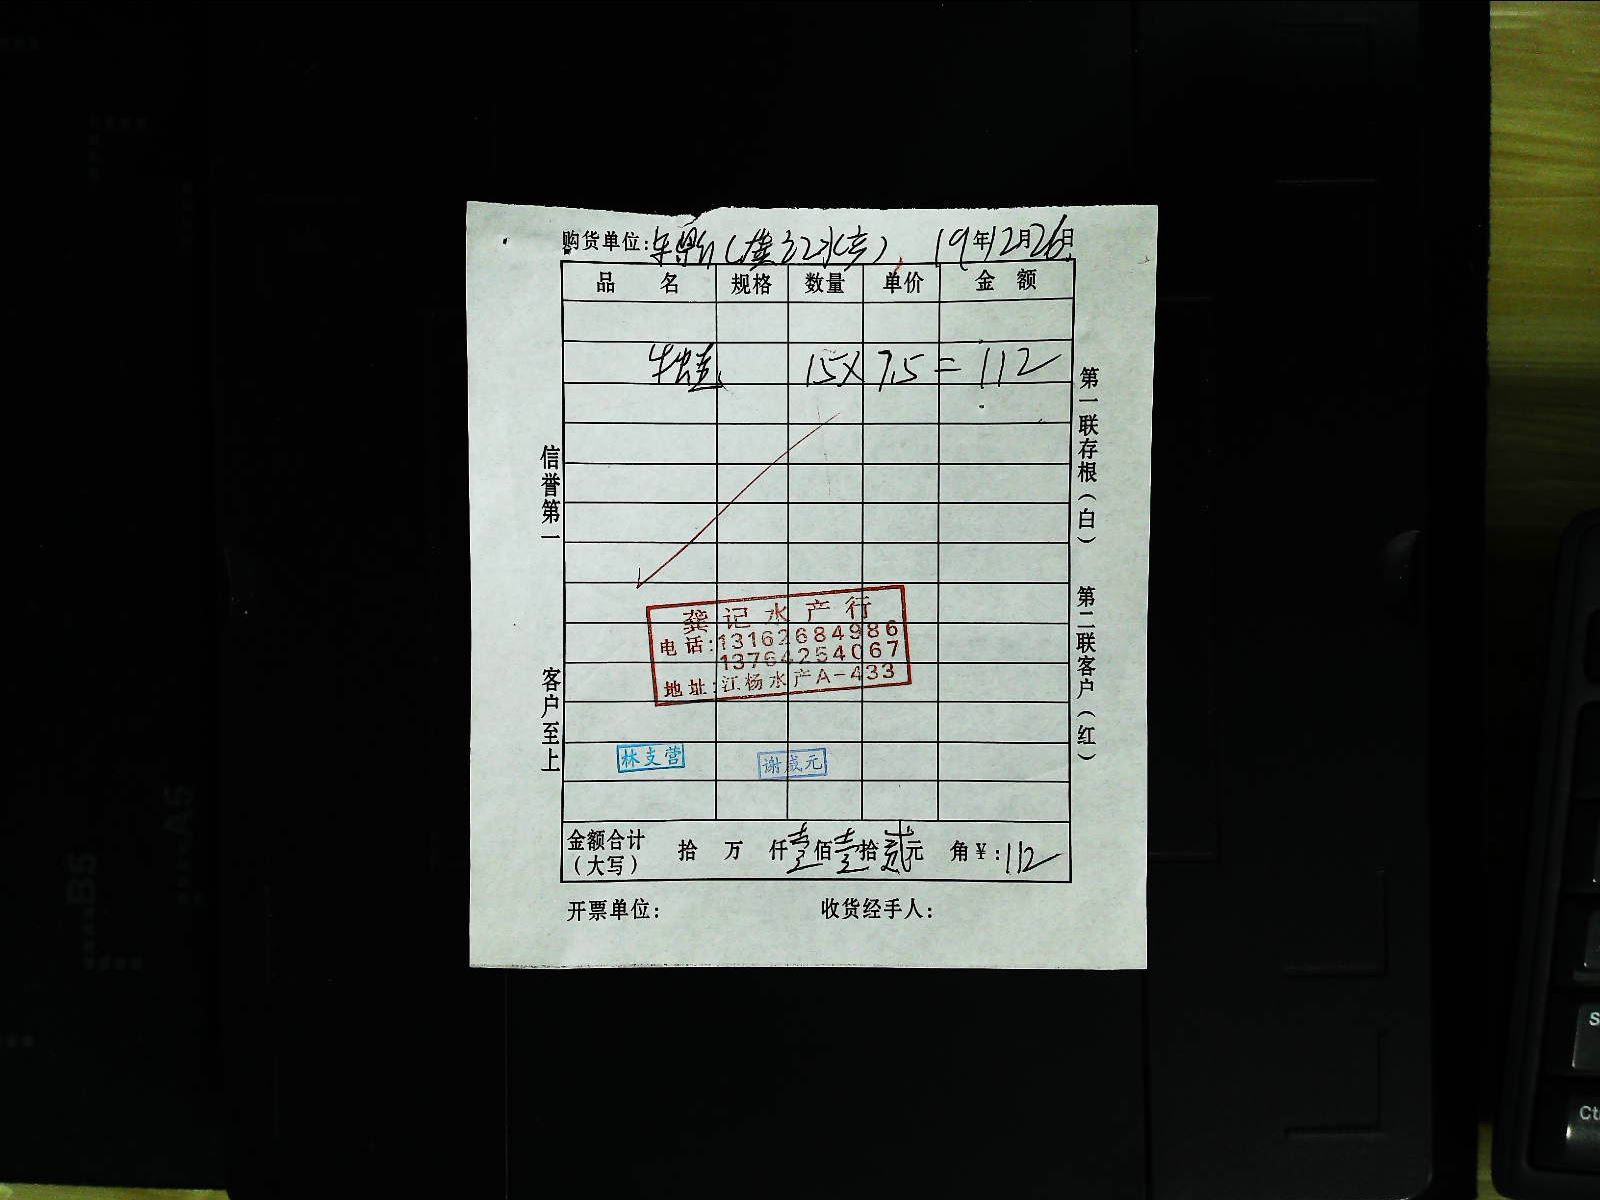 购货单位: 19年12月26日
品 名 规格 数量 单价 金 额
牛蛙 15X 7.5 = 112
信誉第一
客户至上
第一联存根(白)
第二联客户(红)
龚记水产行
电话:13162684986
13764254067
地址:江杨水产A-433
林支营
谢成元
金额合计 拾 万 仟壹佰壹拾贰元 角¥:112
(大写)
开票单位: 收货经手人:
B5
A5
Ct